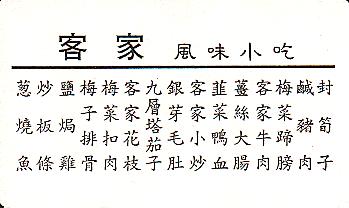 客家 風味小吃
封筍子
鹹豬肉
梅菜蹄膀
客家牛肉
薑絲大腸
韮菜鴨血
客家小炒
銀芽毛肚
九層塔茄子
客家花枝
梅菜扣肉
梅子排骨
鹽焗雞
炒板條
葱燒魚